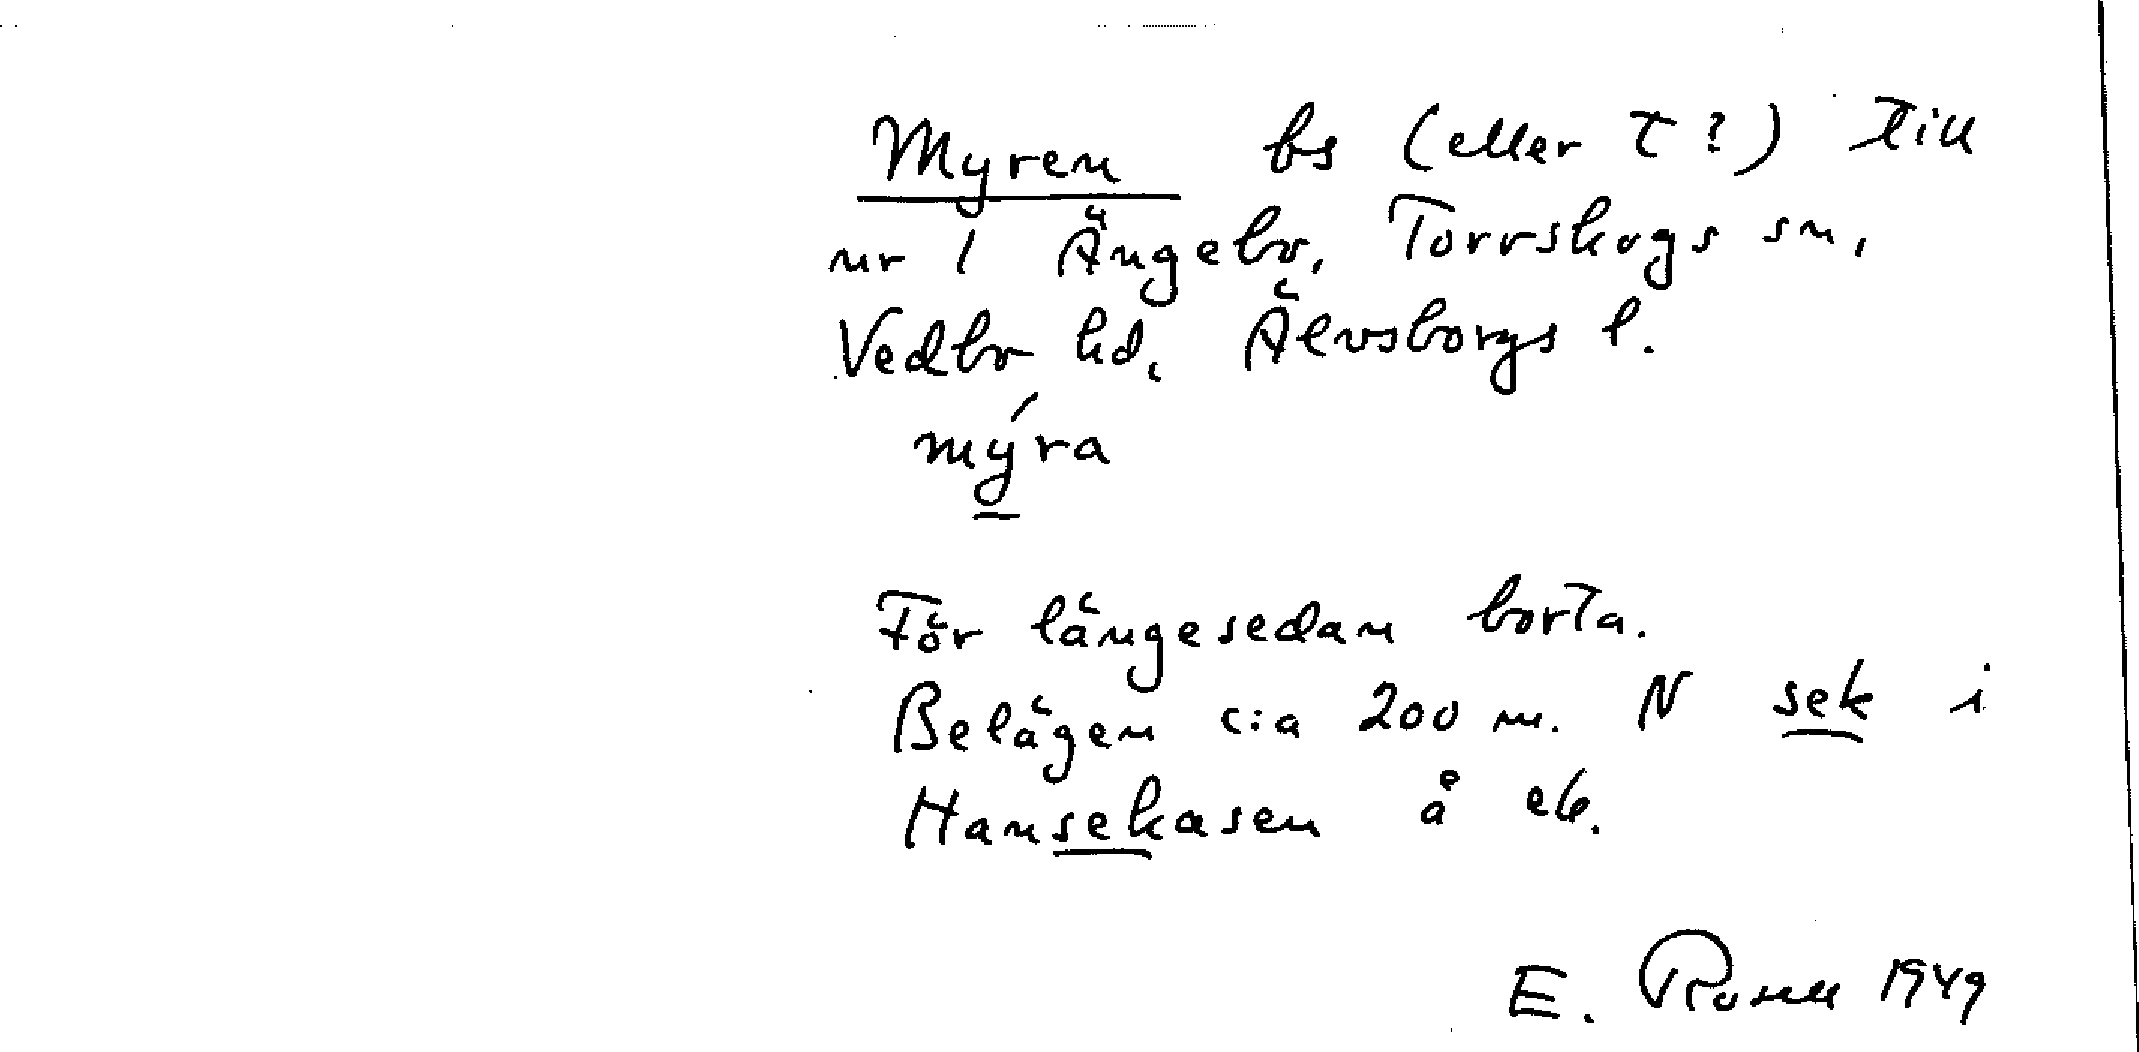 Myren bs (eller t?) till
nr 1 Ängebo, Torrskogs sn,
Vedbo hd, Älvsborgs l.
mýra
För längesedan borta.
Belägen c:a 200 m. N sek i
Hansekasen å eb.
E. 1949